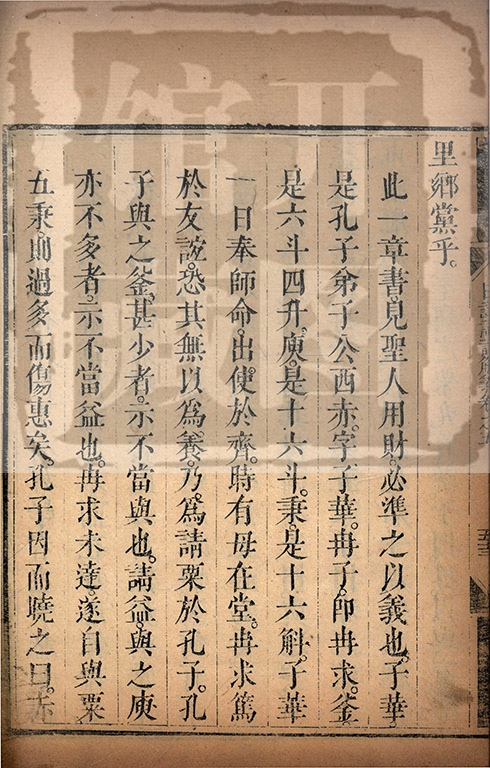 里鄉黨乎。
此一章書。見聖人用財。必準之以義也。子華。
是孔子弟子公西赤。字子華。冉子。即冉求。釜。
是六斗四升。庾。是十六斗。秉。是十六斛。子華
一日奉師命。出使於齊。時有母在堂。冉求篤
於友誼。恐其無以爲養。乃爲請粟於孔子。孔
子與之釜。甚少者。示不當與也。請益。與之庾
亦不多者。示不當益也。冉求未達。遂自與粟
五秉。則過多而傷惠矣。孔子因而曉之曰。赤